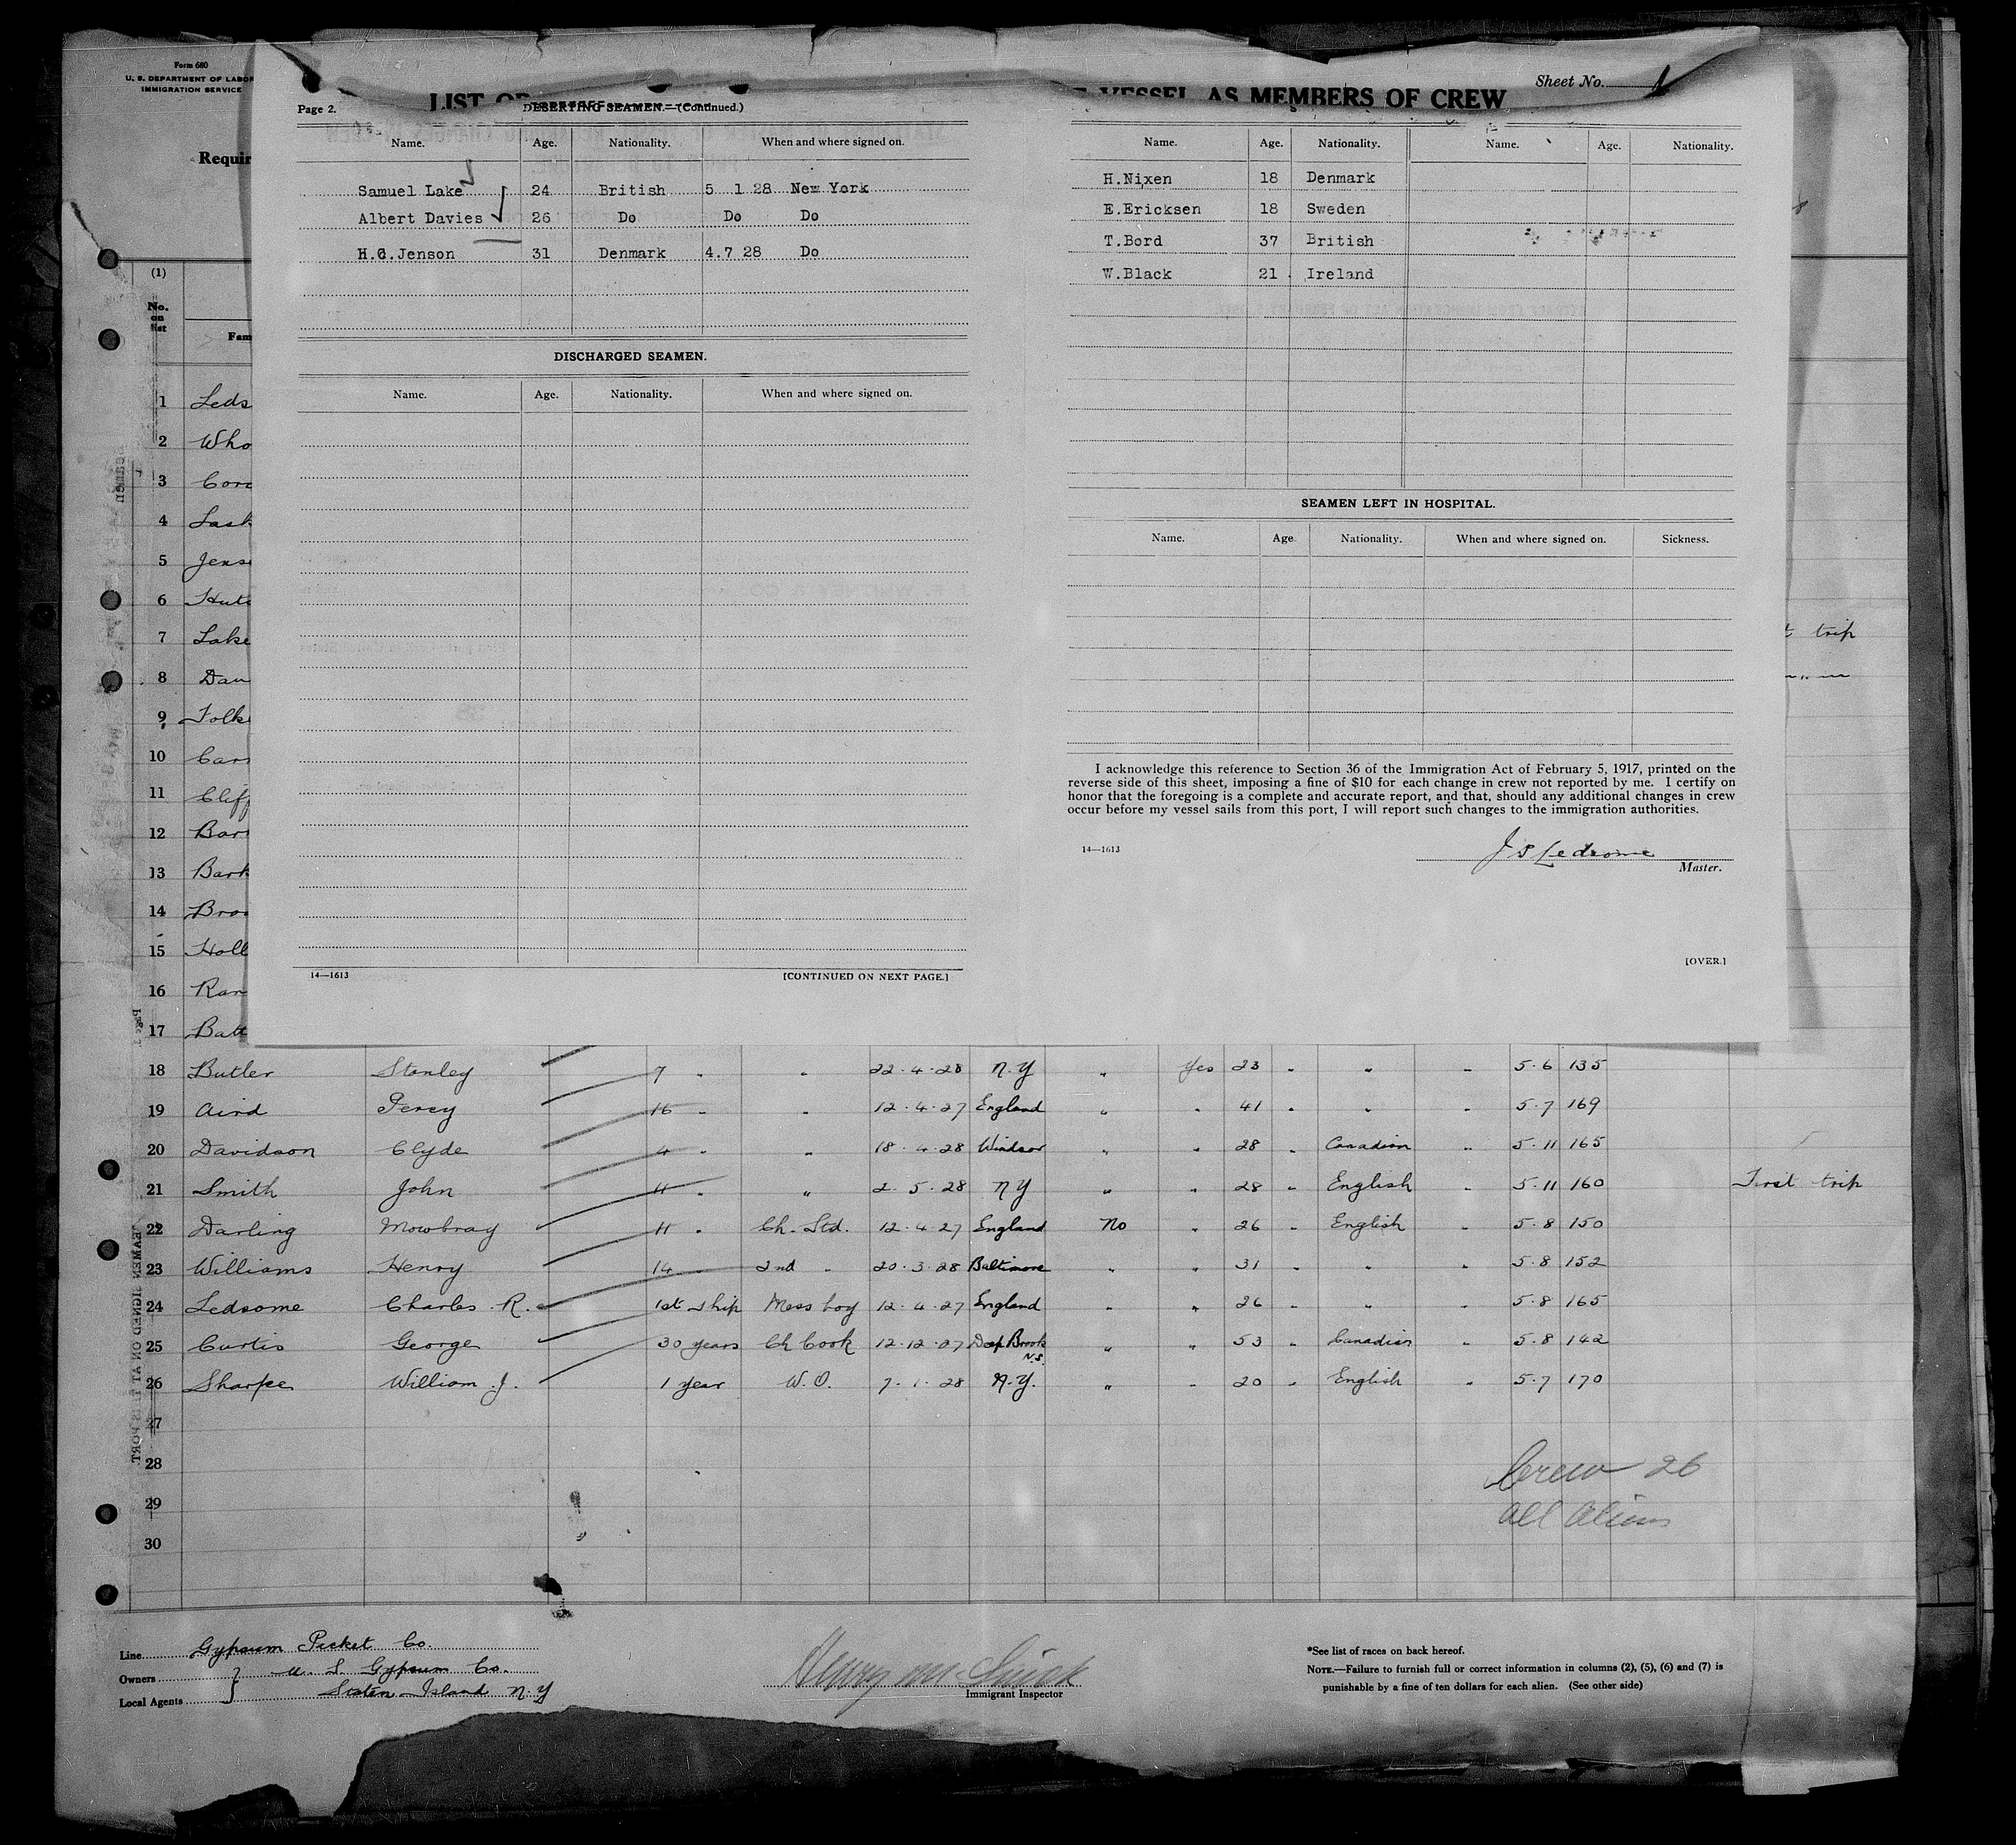 Form 680
U. S. DEPARTMENT OF LABOR
IMMIGRATION SERVICE
Sheet No. 1
LIST OR VESSEL AS MEMBERS OF CREW
Requir
Page 2.
DESERTING SEAMEN.—(Continued.)
Name. Age. Nationality. When and where signed on.
Samuel Lake 24 British 5 1 28 New York
Albert Davies 26 Do Do Do
H.C.Jenson 31 Denmark 4.7 28 Do
DISCHARGED SEAMEN.
Name. Age. Nationality. When and where signed on.
14—1613
[CONTINUED ON NEXT PAGE.]
Name. Age. Nationality. Name. Age. Nationality.
H.Nixen 18 Denmark
E.Ericksen 18 Sweden
T.Bord 37 British
W.Black 21 Ireland
SEAMEN LEFT IN HOSPITAL.
Name. Age. Nationality. When and where signed on. Sickness.
I acknowledge this reference to Section 36 of the Immigration Act of February 5, 1917, printed on the
reverse side of this sheet, imposing a fine of $10 for each change in crew not reported by me. I certify on
honor that the foregoing is a complete and accurate report, and that, should any additional changes in crew
occur before my vessel sails from this port, I will report such changes to the immigration authorities.
14—1613
Master.
[OVER.]
(1)
No. on list
Fam
1 Leds
2 Who
3 Cord
4 Lask
5 Jens
6 Hutc
7 Lake t trip
8 Dav
9 Folk
10 Carr
11 Cliff
12 Barr
13 Bark
14 Broo
15 Holl
16 Ran
17 Batt
18 Butler Stanley 7 " " 22.4.28 N.Y " Yes 23 " " " 5.6 135
19 Aird Percy 16 " 12.4.27 England " " 41 " " " 5.7 169
20 Davidson Clyde 4 " " 18.4.28 Windsor " " 28 " Canadian " 5.11 165
21 Smith John 11 " " 2.5.28 NY " " 28 " English " 5.11 160 First trip
22 Darling Mowbray 11 " Ch. Std. 12.4.27 England No " 26 " English " 5.8 150
23 Williams Henry 14 " 2nd " 20.3.28 Baltimore " " 31 " " " 5.8 152
24 Ledsome Charles R. 1st ship Mess boy 12.4.27 England " " 26 " " " 5.8 165
25 Curtis George 30 years Ch Cook 12.12.27 Deep Brook N.S. " " 53 " Canadian " 5.8 142
26 Sharpe William J. 1 year W.O. 7.1.28 N.Y. " " 20 " English " 5.7 170
27
28
29
30
Crew 26
all aliens
Line Gypsum Packet Co.
Owners } U. S. Gypsum Co.
Local Agents } Staten Island N.Y
Immigrant Inspector
*See list of races on back hereof.
NOTE.—Failure to furnish full or correct information in columns (2), (5), (6) and (7) is
punishable by a fine of ten dollars for each alien. (See other side)